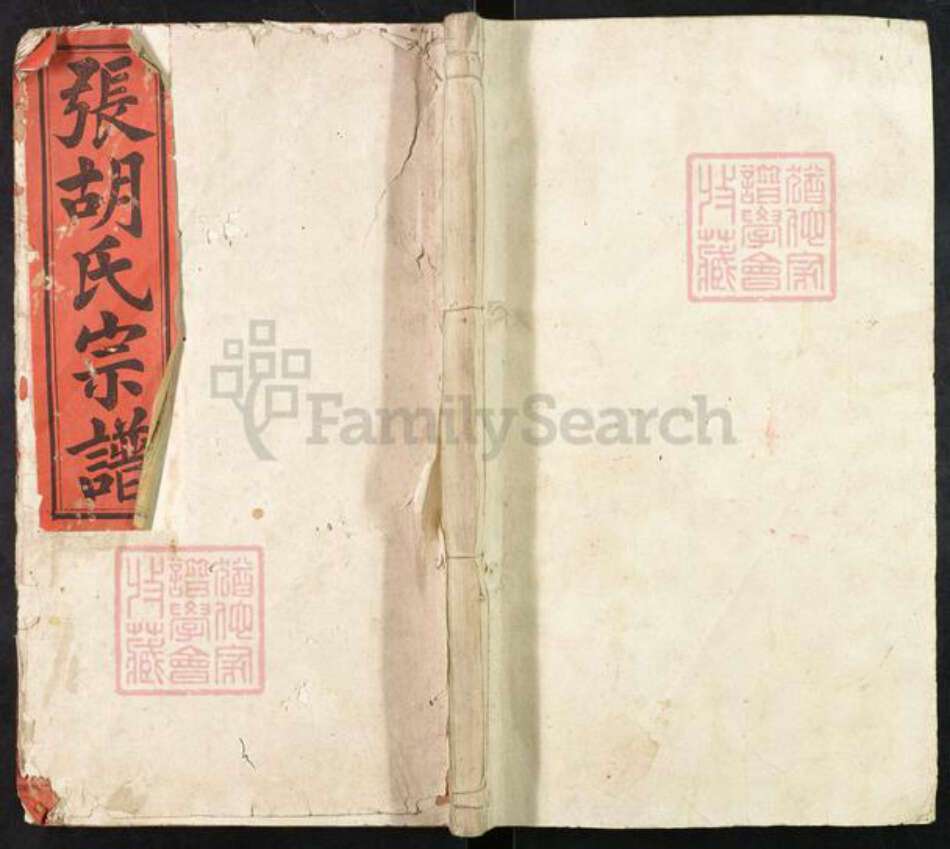 張胡氏宗譜
猶他家
譜學會
收藏
猶他家
譜學會
收藏
FamilySearch